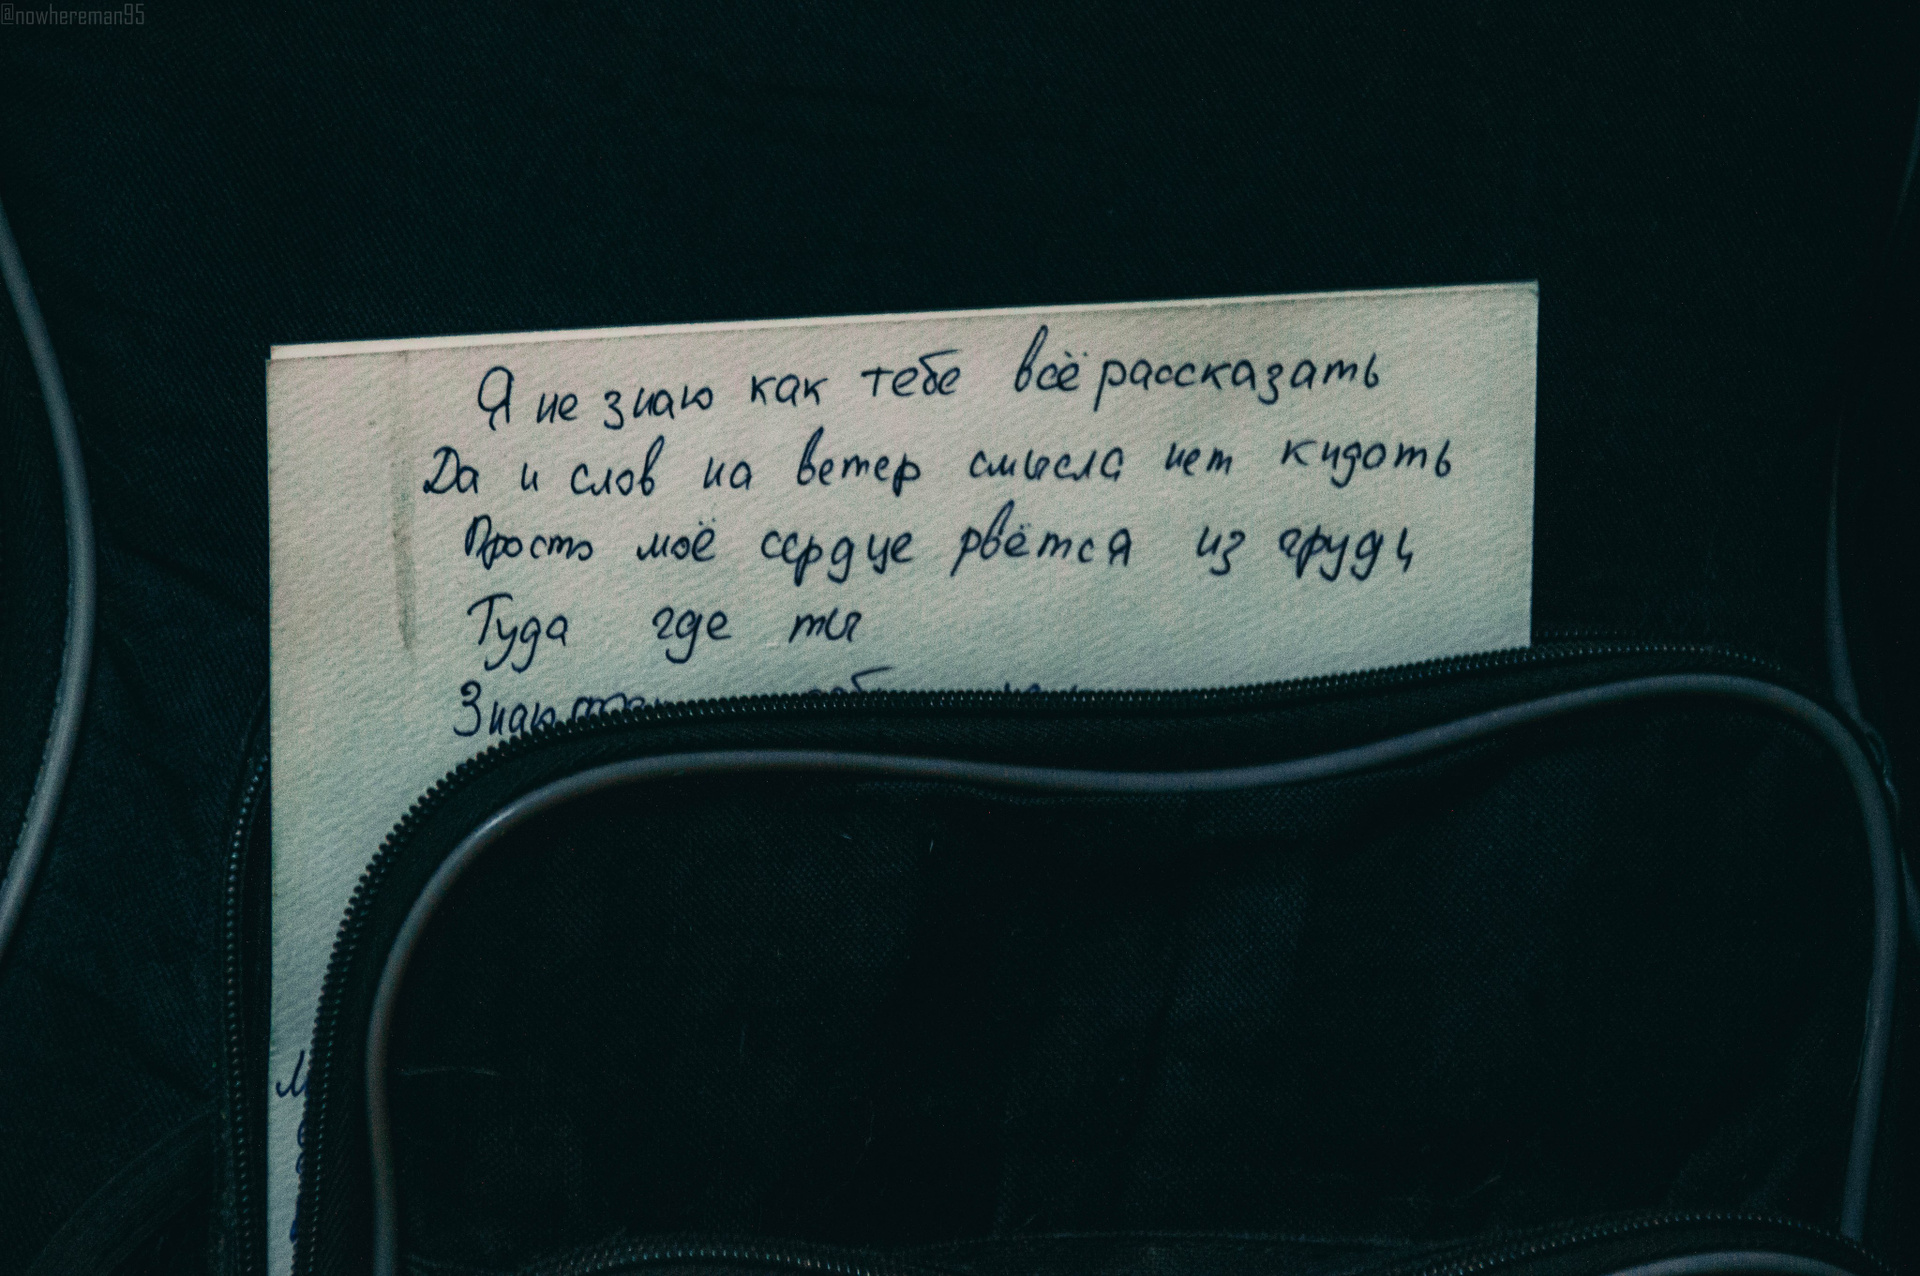 @nowhereman95
Я не знаю как тебе всё рассказать
Да и слов на ветер смысла нет кидать
Просто моё сердце рвётся из груди
Туда где ты